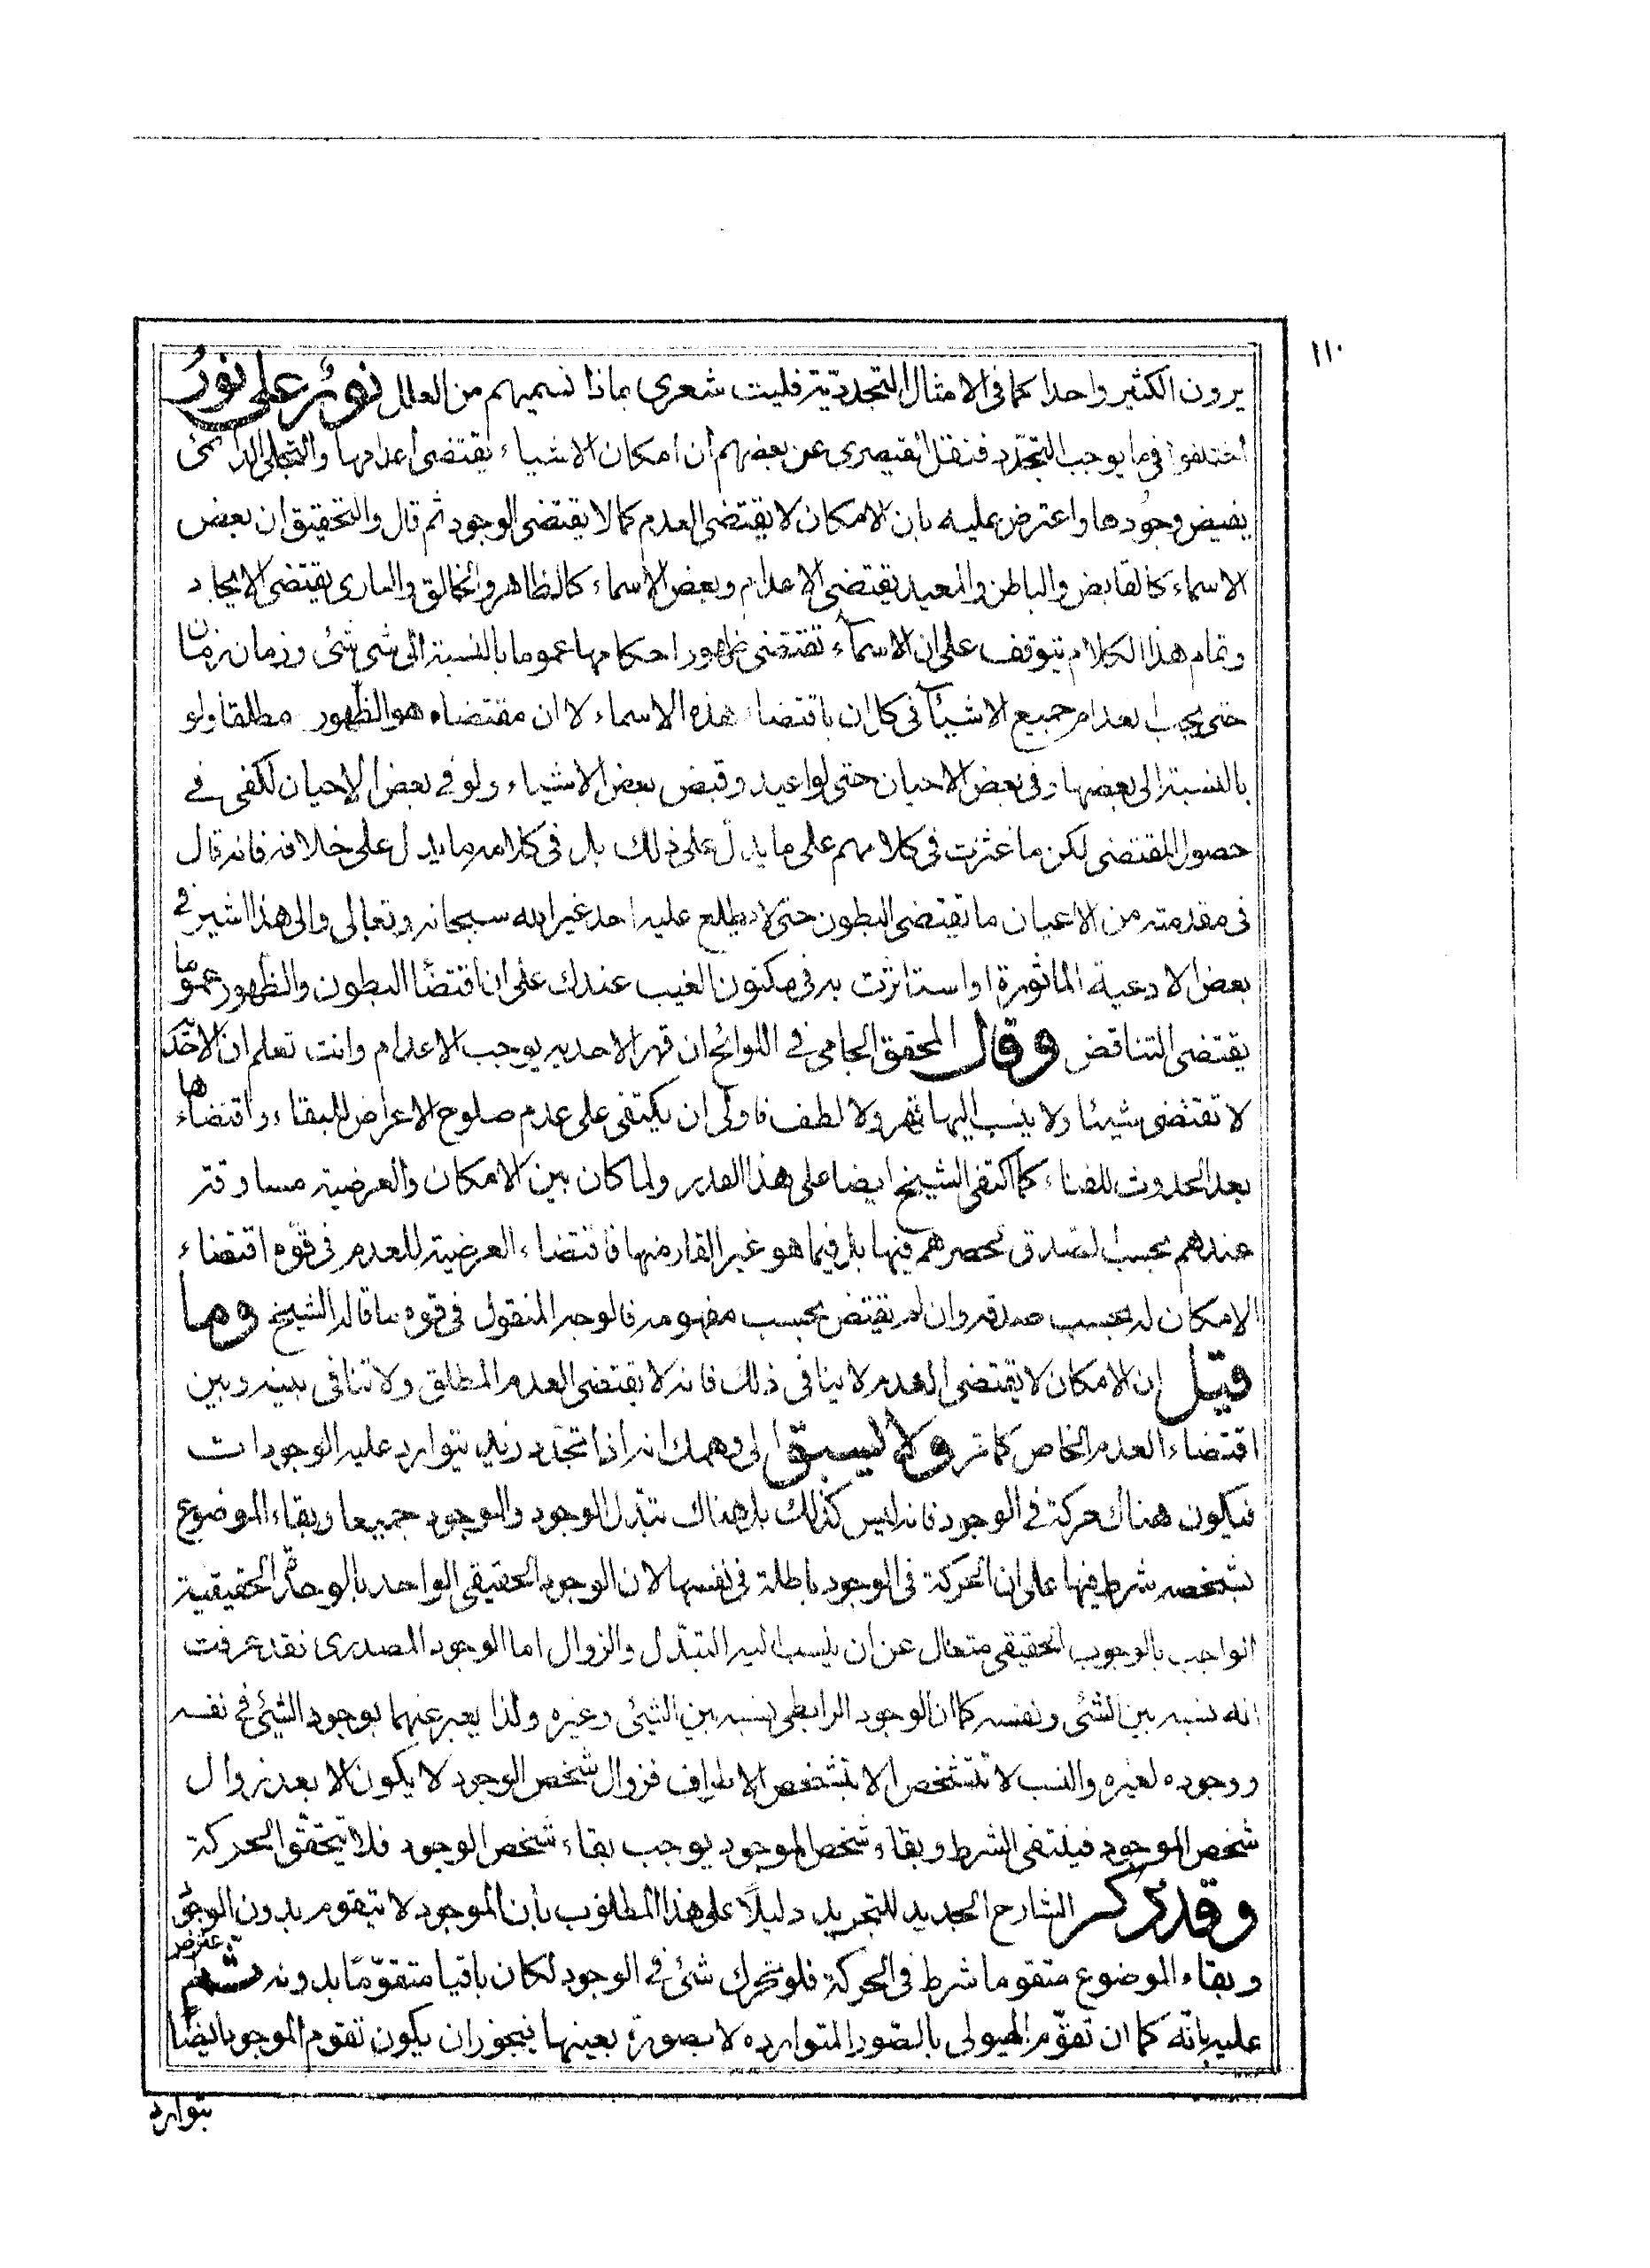 ١١٠
يرون الكثير واحدا كما في الامثال التجددية فليت شعرى بماذا نسميهم من العلل نور على نور
اختلفوا فيما يوجب التجدد فنقل القيصرى عن بعضهم ان امكان الاشياء يقتضى اعدامها والتجلى الدائمى
يفيض وجودها واعترض عليه بان الامكان لا يقتضى العدم كما لا يقتضى الوجود ثم قال والتحقيق ان بعض
الاسماء كالقابض والباطن والمعيد يقتضى الاعدام وبعض الاسماء كالظاهر والخالق والبارى يقتضى الايجاد
وتمام هذا الكلام يتوقف على ان الاسماء تقتضى ظهور احكامها عموما بالنسبة الى شئ شئ وزمان زمان
حتى يجب اعدام جميع الاشياء فى كل ان باقتضاء هذه الاسماء لا ان مقتضاه هو الظهور مطلقا ولو
بالنسبة الى بعضها وفى بعض الاحيان حتى لو اعيد وقبض بعض الاشياء ولو فى بعض الاحيان لكفى فى
حصول المقتضى لكن ما عثرت فى كلامهم على ما يدل على ذلك بل فى كلامه ما يدل على خلافه فانه قال
فى مقدمته من الاعيان ما تقتضى البطون حتى لا يطلع عليه احد غير الله سبحانه وتعالى والى هذا اشير فى
بعض الادعية الماثورة او استاثرت به فى مكنون الغيب عندك على ان اقتضاء البطون والظهور عموما
يقتضى التناقض وقال المحقق الجامى فى اللوائح ان قهر الاحدية يوجب الاعدام وانت تعلم ان الاحدية
لا تقتضى شيئا ولا ينسب اليها قهر ولا لطف فاولى ان يكتفى على عدم صلوح الاعراض للبقاء واقتضاءها
بعد الحدوث للفناء كما اكتفى الشيخ ايضا على هذا القدر ولما كان بين الامكان والعرضية مساوقة
عندهم بحسب الصدق لحصرهم فيها بل فيما هو غير القار منها فاقتضاء العرضية للعدم فى قوه اقتضاء
الامكان له بحسب صدقه وان لم يقتض بحسب مفهومه فالوجه المنقول فى قوه ما قاله الشيخ وما
قيل ان الامكان لا يقتضى العدم لا ينافى ذلك فانه لا يقتضى العدم المطلق ولا تنافى بينه وبين
اقتضاء العدم الخاص كما مر ولا يسبق الى وهمك انه اذا تجدد زيد يتوارد عليه الوجودات
فيكون هناك حركة فى الوجود فانه ليس كذلك بل هناك تبدل الوجود والموجود جميعا وبقاء الموضوع
بشخصه شرط فيها على ان الحركة فى الوجود باطلة فى نفسها لان الوجود الحقيقى الواحد بالوحدة الحقيقية
الواجب بالوجوب الحقيقى متعال عن ان ينسب اليه التبدل والزوال اما الوجود المصدرى فقد عرفت
انه نسبه بين الشئ ونفسه كما ان الوجود الرابطى نسبه بين الشئ وغيره ولذا يعبر عنهما بوجود الشئ فى نفسه
ووجوده لغيره والنسب لا تتشخص الا بتشخص الاطراف فزوال شخص الوجود لا يكون الا بعد زوال
شخص الموجود فينتفى الشرط وبقاء شخص الموجود يوجب بقاء شخص الوجود فلا يتحقق الحركة
وقد ذكر الشارح الجديد للتجريد دليلا على هذا المطلوب بأن الموجود لا يتقوم بدون الوجود
وبقاء الموضوع متقوما شرط فى الحركة فلو تحرك شئ فى الوجود لكان باقيا متقوما بدونه ثم اعترض
عليه بانّه كما ان تقوّم الهيولى بالصّور المتوارده لا بصورة بعينها فيجوز ان يكون تقوم الموجود ايضا
بتوارد